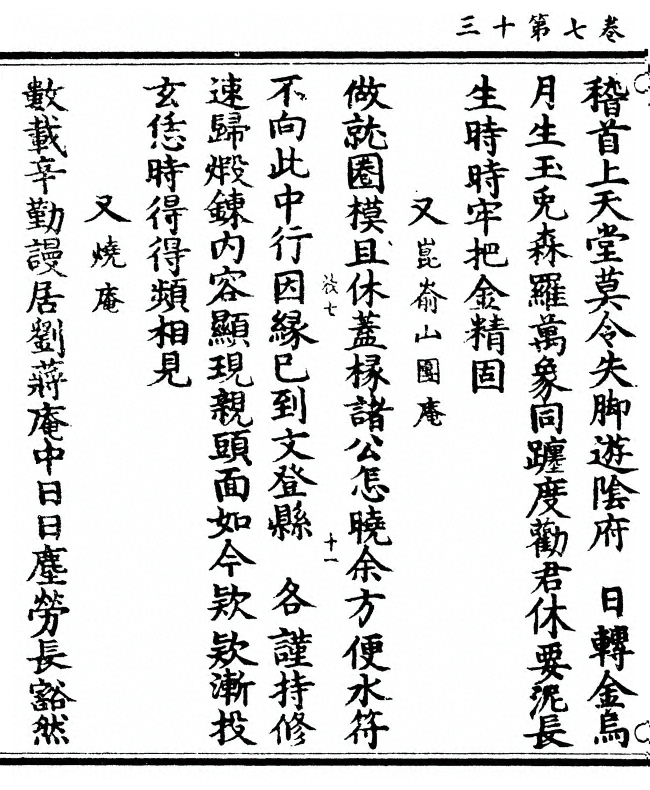 三十第七卷
稽首上天堂莫令失脚遊陰府　日轉金烏
月生玉兎森羅萬象同躔度勸君休要泥長
生時時牢把金精固
又崑崳山團庵
做就圈模且休蓋椽諸公怎曉余方便水符
不向此中行因緣已到文登縣　各謹持修
速歸煅鍊内容顯現親頭面如今欵欵漸投
玄恁時得得頻相見
又燒庵
數載辛勤謾居劉蔣庵中日日塵勞長豁然
十一